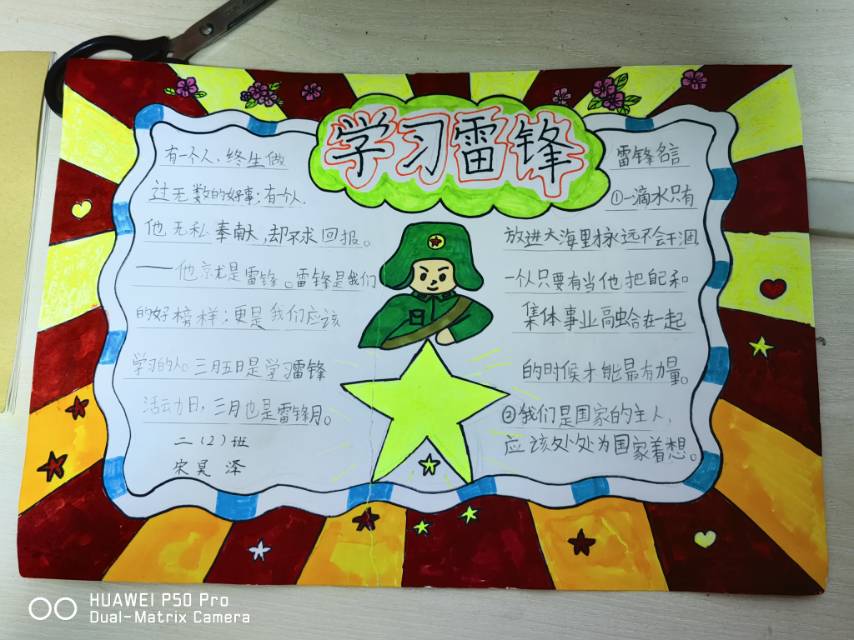 学习雷锋
有一个人,终生做
过无数的好事;有个人,
他无私奉献,却不求回报。
——他就是雷锋。雷锋是我们
的好榜样;更是我们应该
学习的人。三月五日是学习雷锋
活动日,三月也是雷锋月。
二(2)班
宋昊泽
雷锋名言
①一滴水只有
放进大海里才永远不会干涸
一个人只有当他把自己和
集体事业融合在一起
的时候才能最有力量。
②我们是国家的主人,
应该处处为国家着想。
HUAWEI P50 Pro
Dual-Matrix Camera